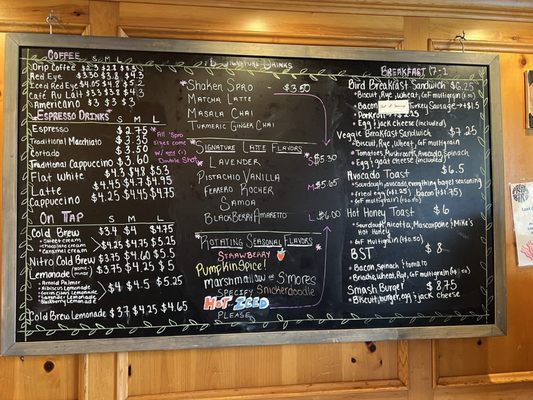 COFFEE S M L
Drip Coffee $2.3 $2.8 $4.3
Red Eye $3.30 $3.8 $4.3
Iced Red Eye $4.05 $4.8
Café Au Lait $3 $3.5
Americano $3 $3.5
ESPRESSO DRINKS S M L
Espresso $2.75
Traditional Macchiato $3.30
Cortado $3.50
Traditional Cappuccino $3.60
Flat White $4.3 $4.8 $5.3
Latte $4.45 $4.7 $4.95
Cappuccino $4.25 $4.45 $4.75
*All 'Spro
Drinks come
w/
Double Shot
ON TAP S M L
Cold Brew $3.4 $4 $4.75
Sweet cream
Chocolate cream
Caramel cream
$4.25 $4.75 $5.25
Nitro Cold Brew $3.75 $4.60 $5.5
Lemonade (HOME-MADE) $3.75 $4.25 $5
Arnold Palmer
Hibiscus Lemonade
Lavender Lemonade
Blueberry Lemonade
$4 $4.5 $5.25
Cold Brew Lemonade $3.7 $4.25 $4.65
SIGNATURE DRINKS
*Shaken Spro $3.50
Matcha Latte
Masala Chai
Turmeric Ginger Chai
*Signature Latte Flavors
Lavender
Pistachio Vanilla
Ferrero Rocher
Samoa
Blackberry Amaretto
S $5.30
M $5.65
L $6.00
*Rotating Seasonal Flavors
Strawberry
Pumpkin Spice!
Marshmallow or S'mores
Snickerdoodle
Specify
HOT ICED
PLEASE
BREAKFAST (7-1)
Bird Breakfast Sandwich $6.25
• Biscuit, Rye, Wheat, GF multigrain
• Bacon
Turkey Sausage +$1.5
• Egg & Jack cheese (included)
Veggie Breakfast Sandwich $7.25
• Biscuit, Rye, Wheat, GF multigrain
• Tomatoes, Mushrooms, Avocado, Spinach
• Egg & Jack cheese (included)
Avocado Toast $6.5
• Sourdough, avocado, everything bagel seasoning
• Fried egg ($1.25), bacon ($1.75)
• GF multigrain ($1.50)
Hot Honey Toast $6
• Sourdough, Ricotta, Mascarpone, & Mike's
Hot Honey
• GF multigrain ($1.50)
BST $8
• Bacon, Spinach, Tomato
• Wheat, Rye, GF multigrain
Smash Burger $8.75
• Biscuit, burger, egg & jack cheese